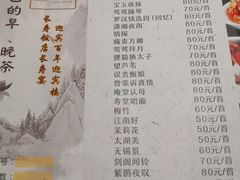 宝玉夜探 80元/首
莺莺操琴 80元/首
罗汉钱选段(回忆) 80元/首
潇湘夜雨 80元/首
情探 80元/首
痛责方卿 80元/首
莺莺拜月 70元/首
狸猫换太子 70元/首
望芦苇 80元/首
误责甄姐 80元/首
曾荣诉真情 80元/首
庵堂认母 80元/首
寿堂唱曲 80元/首
梅竹 60元/首
江南好 50元/首
茉莉花 50元/首
太湖美 50元/首
无锡景 60元/首
剑阁闻铃 70元/首
紫鹃夜叹 80元/首
迎宾百年迎宾楼
长寿饭店长寿宴
的早、晚茶